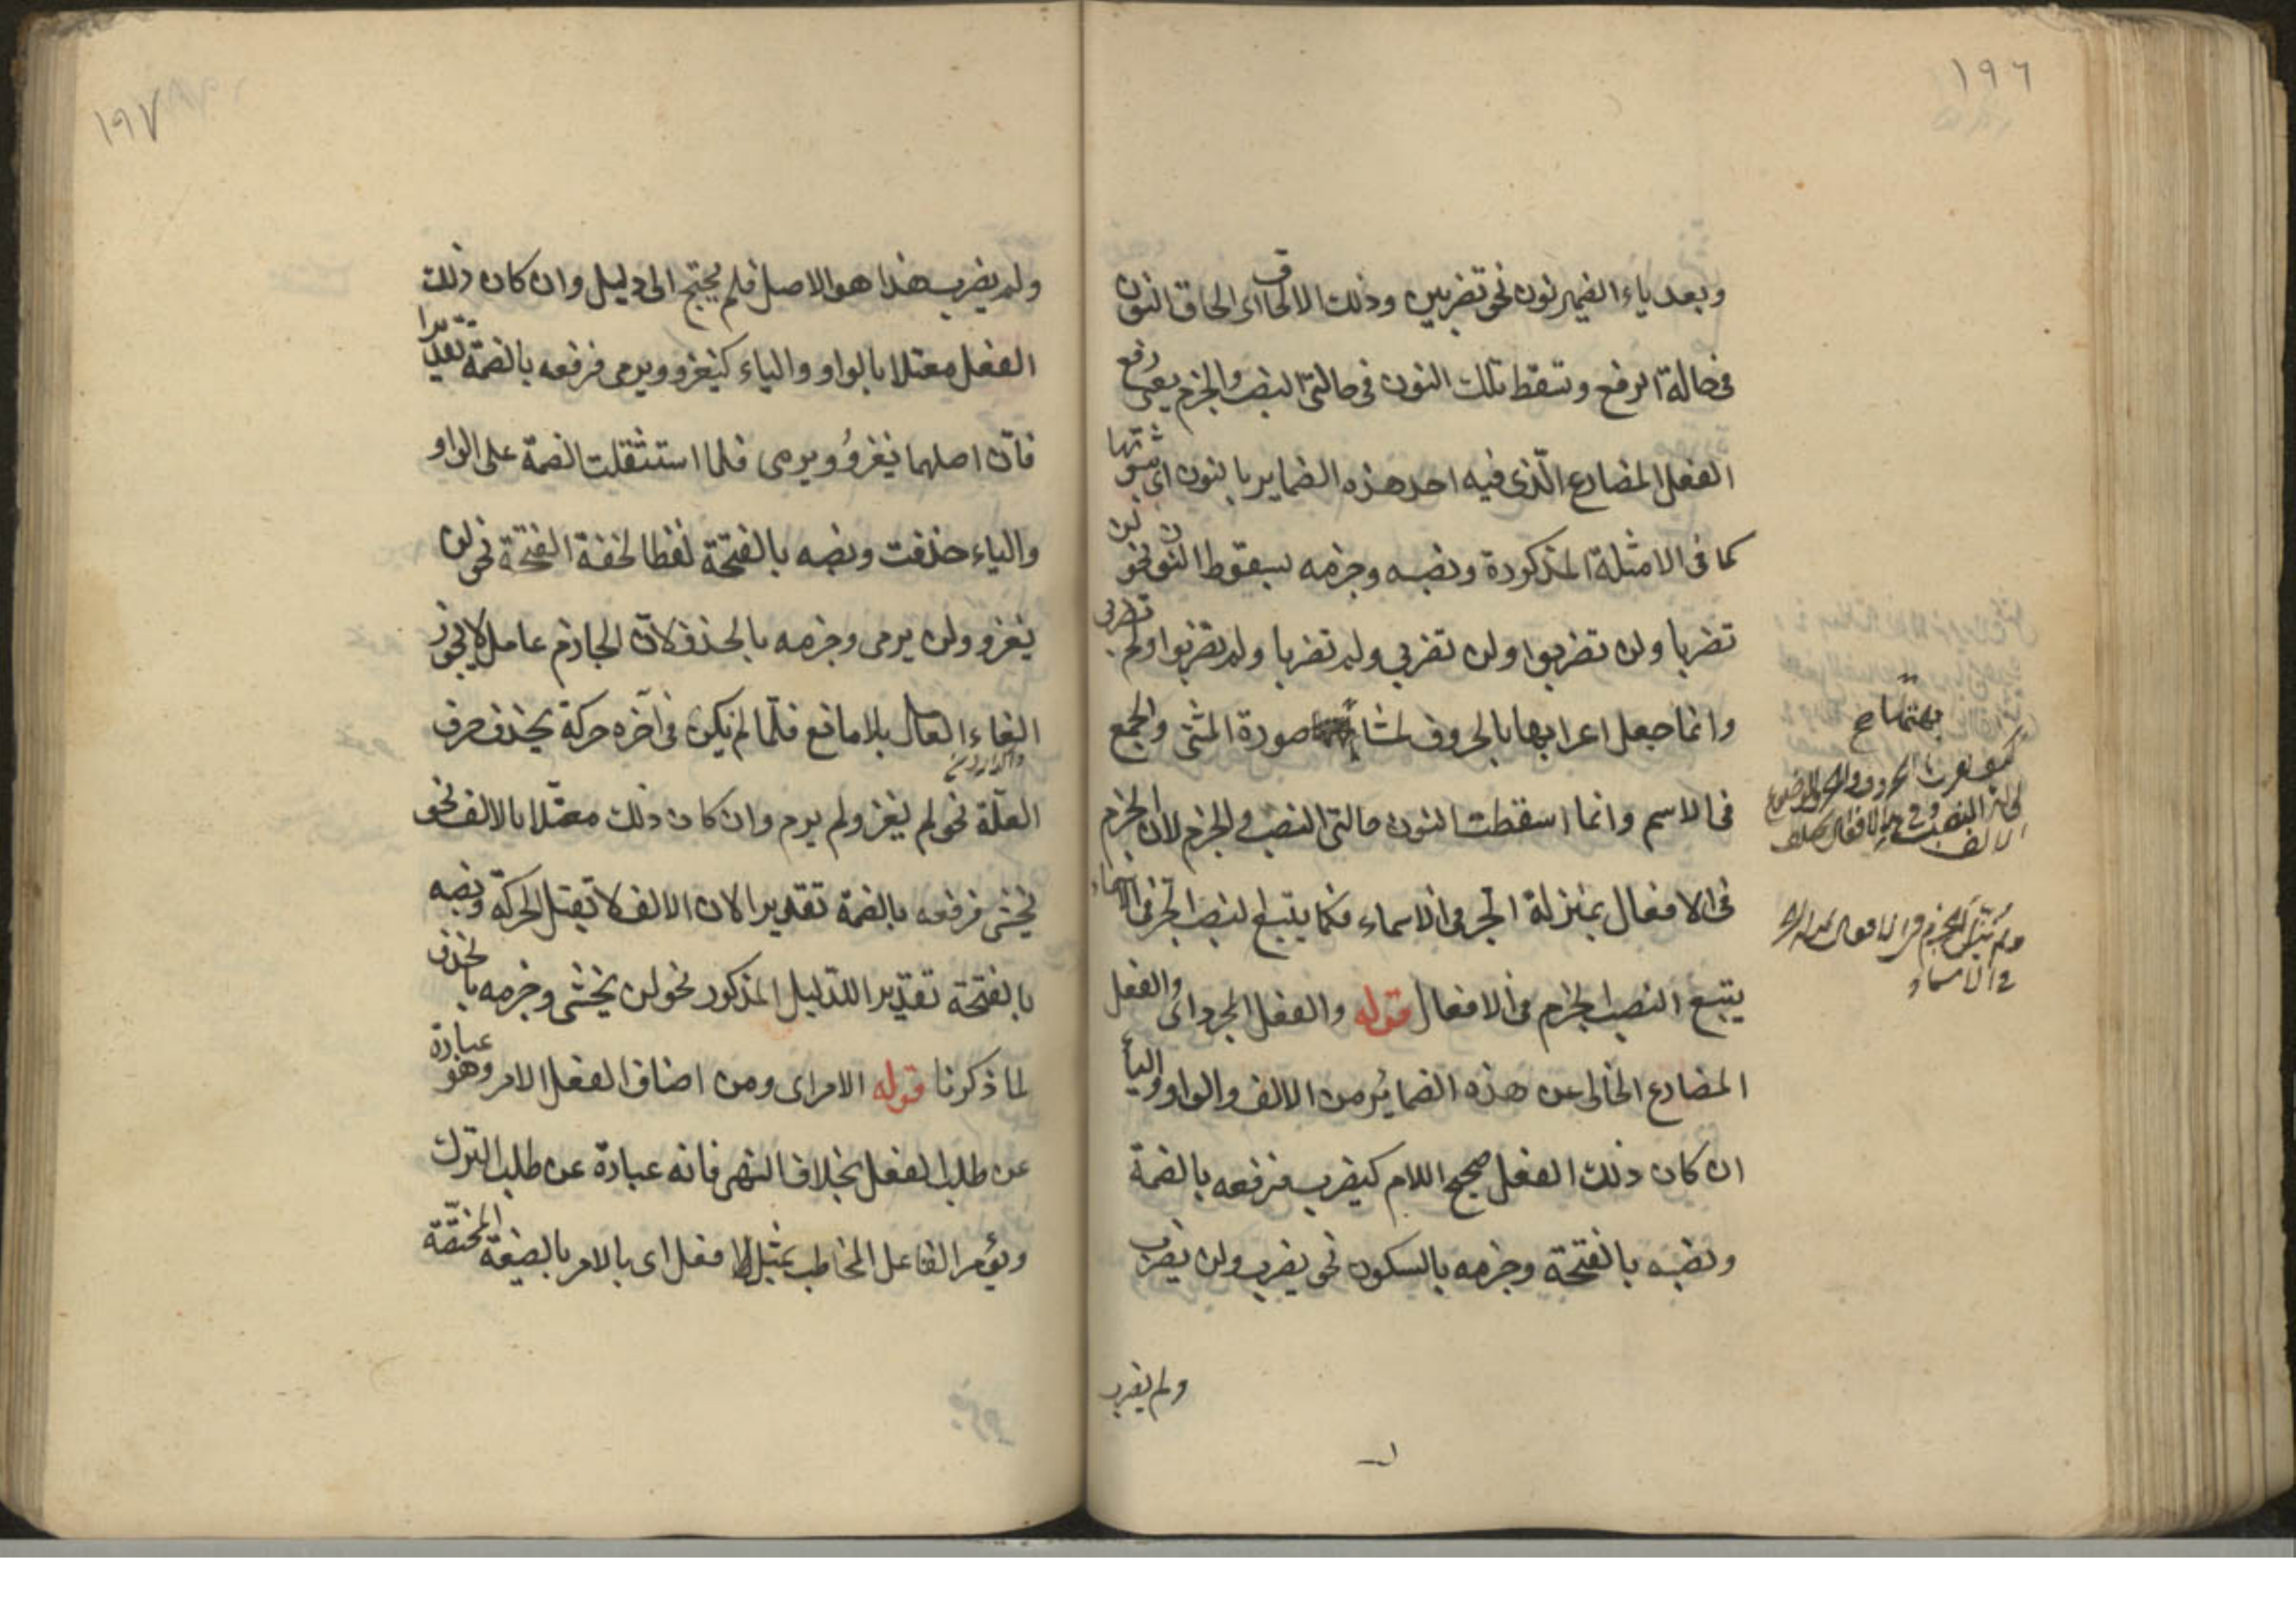 ١٩٦
وبعد ياء الضمير نون نحو تضربين وذلك الالحاق اى الحاق النون
فى حالة الرفع وتسقط تلك النون فى حالتى النصب والجزم يعنى رفع
الفعل المضارع الّذى فيه احد هذه الضماير بالنون اى بثبوتها
كما فى الامثلة المذكورة ونصبه وجزمه بسقوط النون نحو لن
تضربا ولن تضربوا ولن تضربي ولم تضربا ولم تضربوا ولم تضربي
وانما جعل اعرابها بالحروف لمشابهتها صورة المثنى والجمع
فى الاسم وانما اسقطت النون حالتى النصب والجزم لان الجزم
فى الافعال بمنزلة الجر فى الاسماء فكما يتبع النصب الجر فى الاسماء
يتبع النصب الجزم فى الافعال قوله والفعل المجرد اى والفعل
المضارع الخالى عن هذه الضمائر من الالف والواو والياء
ان كان ذلك الفعل صحيح اللام كيضرب فرفعه بالضمة
ونصبه بالفتحة وجزمه بالسكون نحو يضرب ولن يضرب
ولم يضرب
١٩٧
ولم يضرب هذا هو الاصل فلم يحتج الى دليل وان كان ذلك
الفعل معتلا بالواو والياء كيغزو ويرمى فرفعه بالضمة تقديرا
فانّ اصلهما يغزوُ ويرمى فلما استثقلت الضمة على الواو
والياء حذفت ونصبه بالفتحة لفظا لخفة الفتحة نحو لن
يغزو ولن يرمى وجزمه بالحذف لانّ الجازم عامل لا يجوز
الغاء العامل بلا مانع فلمّا لم يكن فى آخره حركة يحذف حرف
العلّة نحو لم يغز ولم يرم وان كان ذلك معتّلا بالالف نحو
يخشى فرفعه بالضمة تقديرا لان الالف لا تقبل الحركة ونصبه
بالفتحة تقديرا للدليل المذكور نحو لن يخشى وجزمه بالحذف
لما ذكرنا قوله الامر اى ومن اصناف الفعل الامر وهو عبارة
عن طلب الفعل بخلاف النهى فانه عبارة عن طلب الترك
ويؤمر الفاعل المخاطب بمثل افعل اى بالامر بالصيغة المختصّة